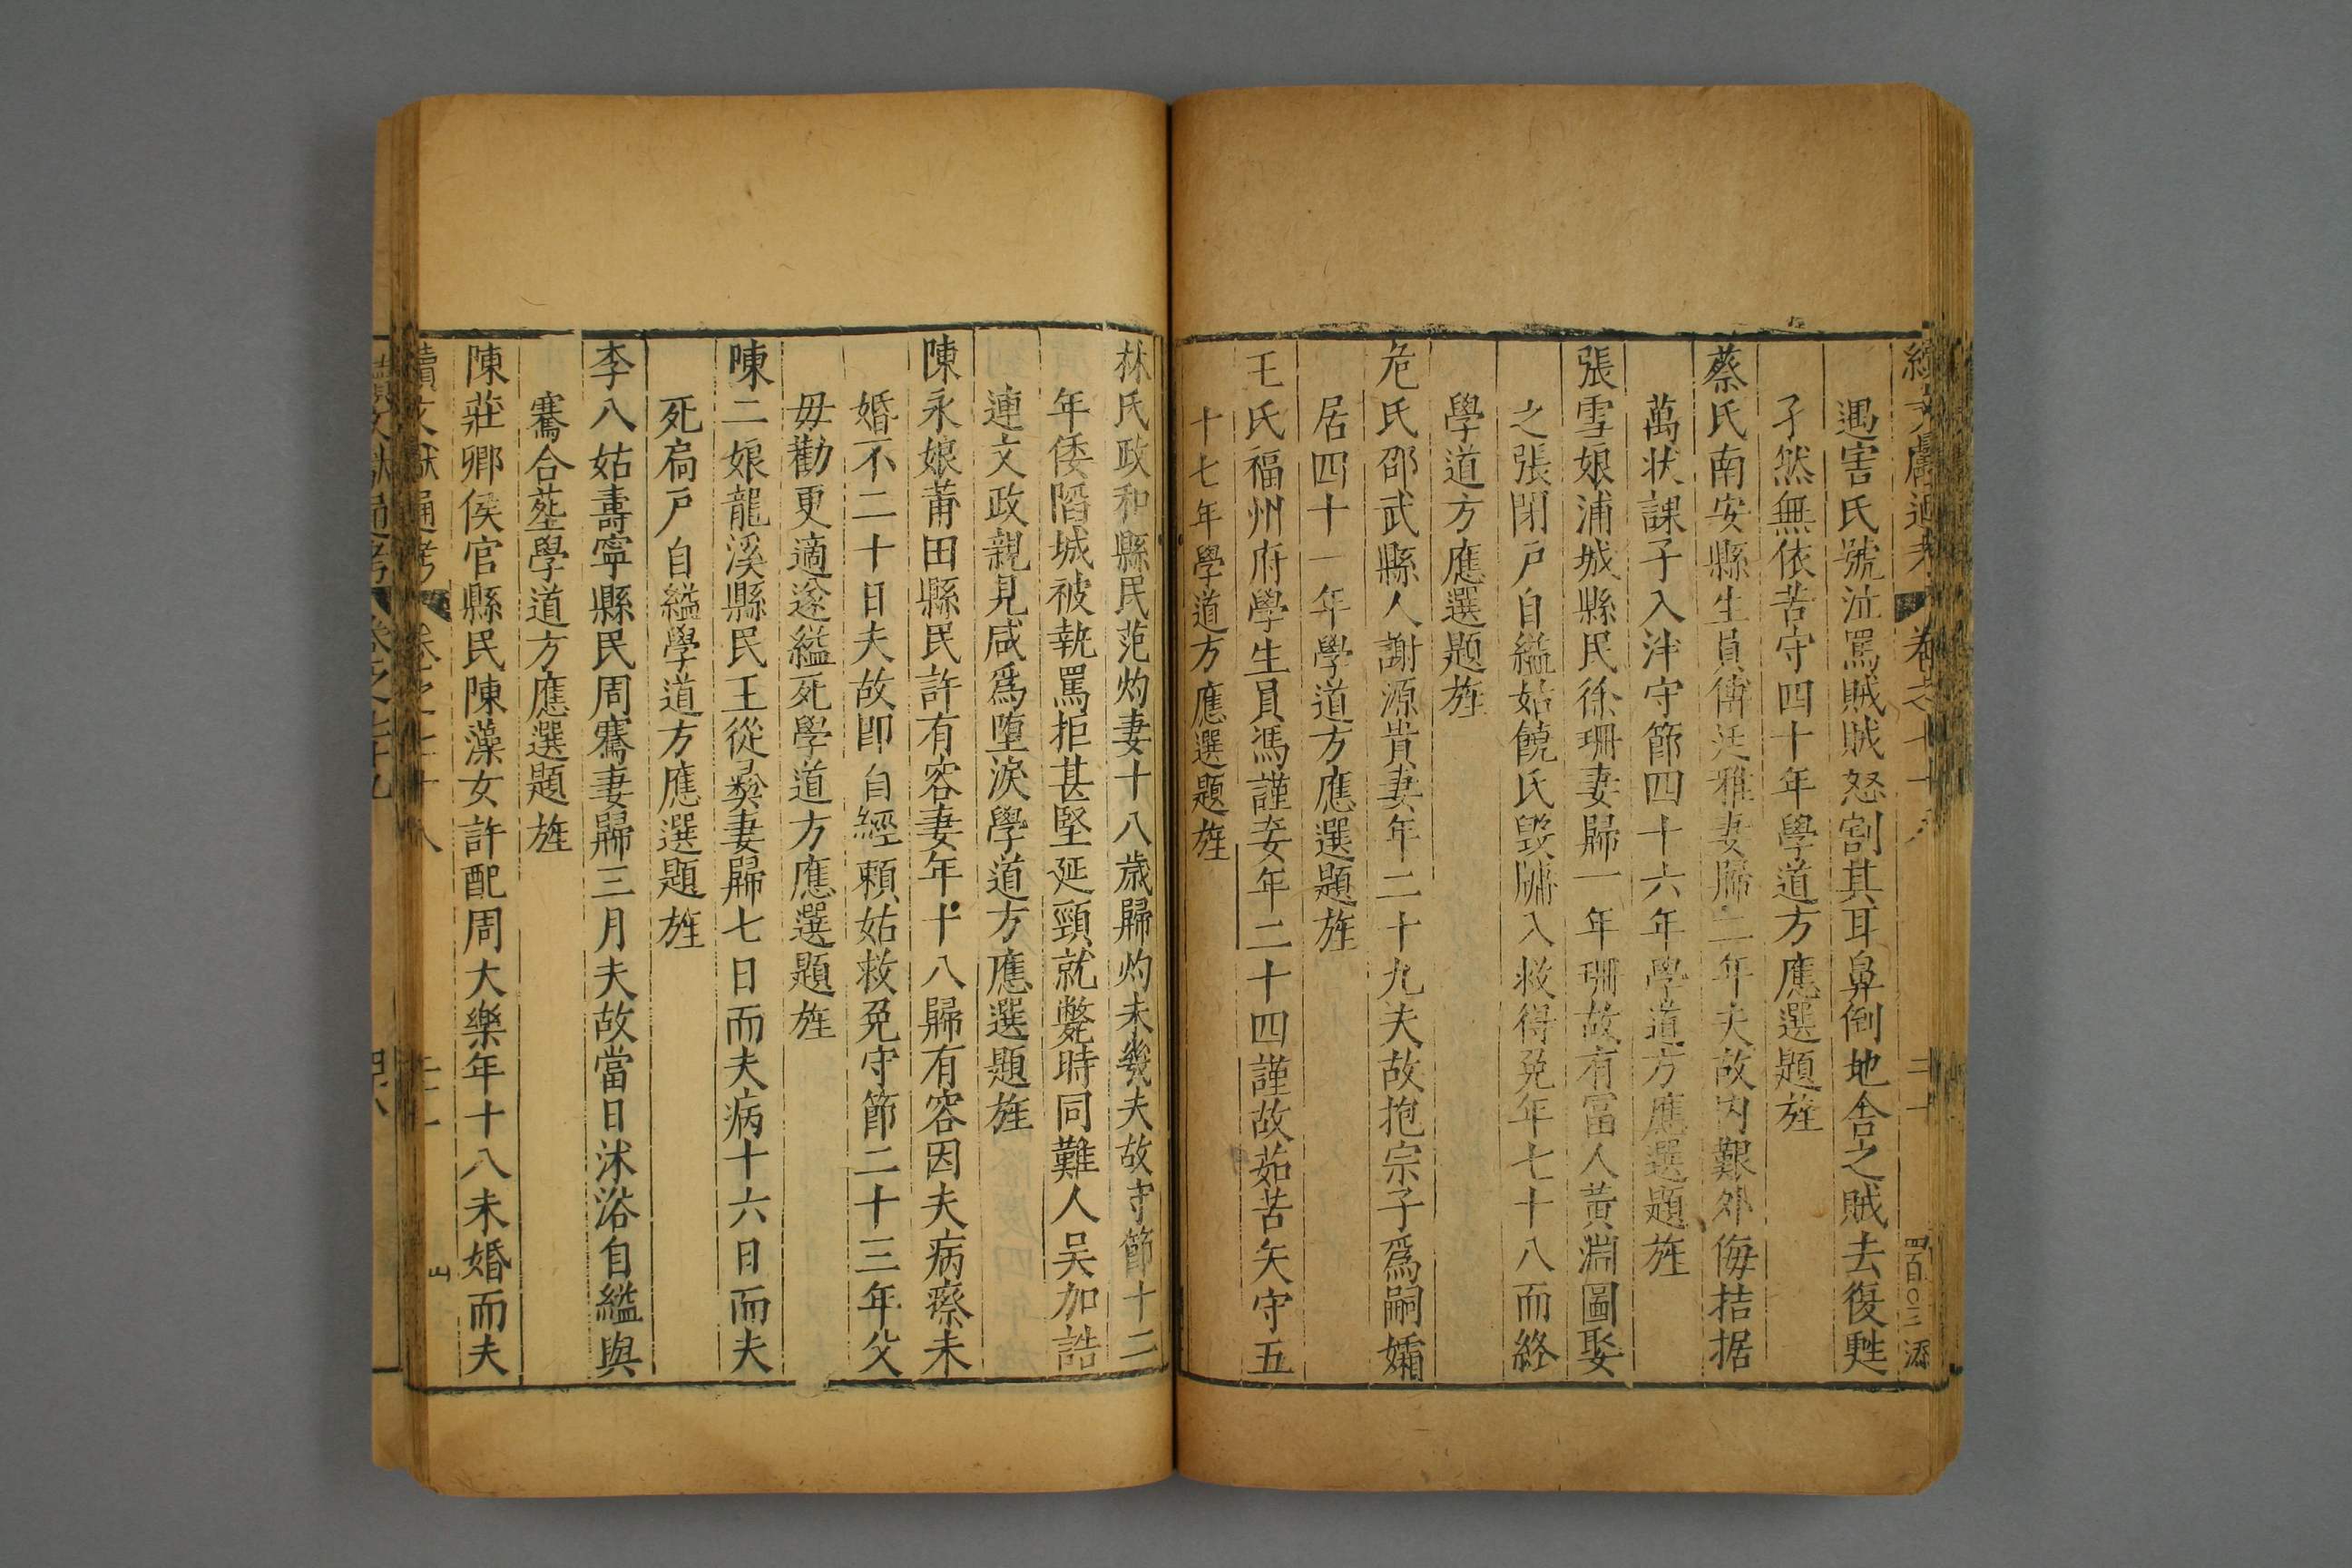 遇害氏號泣罵賊賊怒割其耳鼻倒地舍之賊去復甦
孑然無依苦守四十年學道方應選題旌
蔡氏南安縣生員傅廷雅妻歸二年夫故内艱外侮拮据
萬状課子入泮守節四十六年學道方應選題旌
張雪娘浦城縣民徐珊妻歸一年珊故有富人黃淵圖娶
之張閉戸自縊姑饒氏毁牖入救得免年七十八而終
學道方應選題旌
危氏邵武縣人謝源貴妻年二十九夫故抱宗子爲嗣孀
居四十一年學道方應選題旌
王氏福州府學生員馮謹妾年二十四謹故茹苦矢守五
十七年學道方應選題旌
林氏政和縣民范灼妻十八歳歸灼未幾夫故守節十二
年倭陷城被執罵拒甚堅延頸就斃時同難人吴加誥
連文政親見咸爲墮淚學道方應選題旌
陳永娘莆田縣民許有容妻年十八歸有容因夫病瘵未
婚不二十日夫故即自經頼姑救免守節二十三年父
毋勸更適遂縊死學道方應選題旌
陳二娘龍溪縣民王從彛妻歸七日而夫病十六日而夫
死扃戸自縊學道方應選題旌
李八姑壽寧縣民周騫妻歸三月夫故當日沐浴自縊與
騫合塟學道方應選題旌
陳莊卿侯官縣民陳藻女許配周大樂年十八未婚而夫